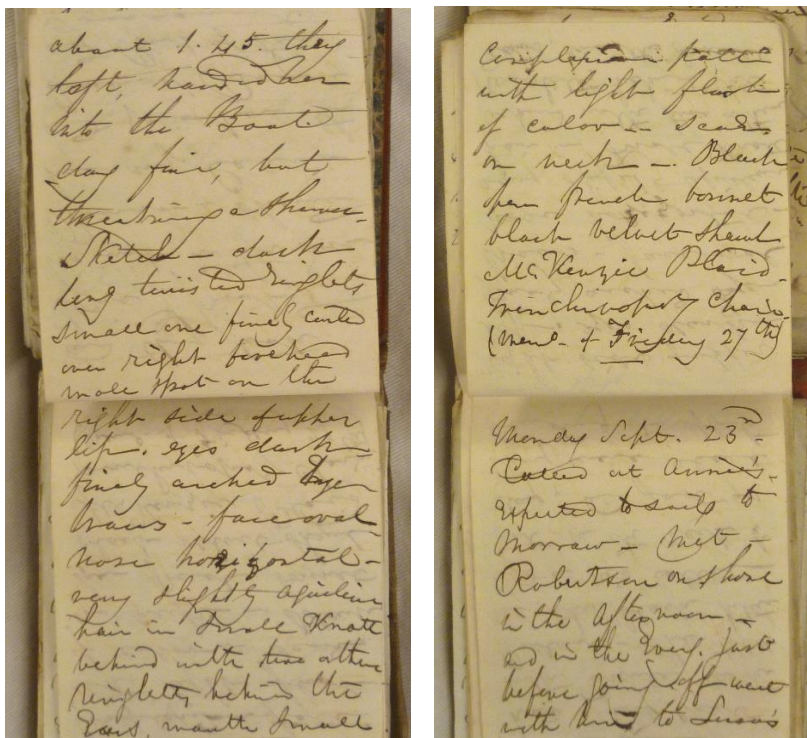 about 1.45. they
left, handed her
into the Boat
day fair, but
threatning a shower-
Sketch - dark
long twisted ringlets
small one finely curled
over right forehead
mole spot on the
right side of upper
lip. eyes dark
finely arched Eye
brows - face oval
nose horizontal -
very slightly aquiline
hair in small Knott
behind with two other
ringletts behind the
Ears, mouth small
Complexion
with light
of color -- scar
on neck -. Black
open french bonnet
black velvet shawl
McKenzie Plaid.
Trinchinopoly chain.
(mem. of Friday 27th)
Monday Sept. 23rd.
Called at Annie's.
Expected to sail to
Morrow - Met -
Robertson on shore
in the afternoon -
and in the Eveng. just
before going off went
with him to Susan's